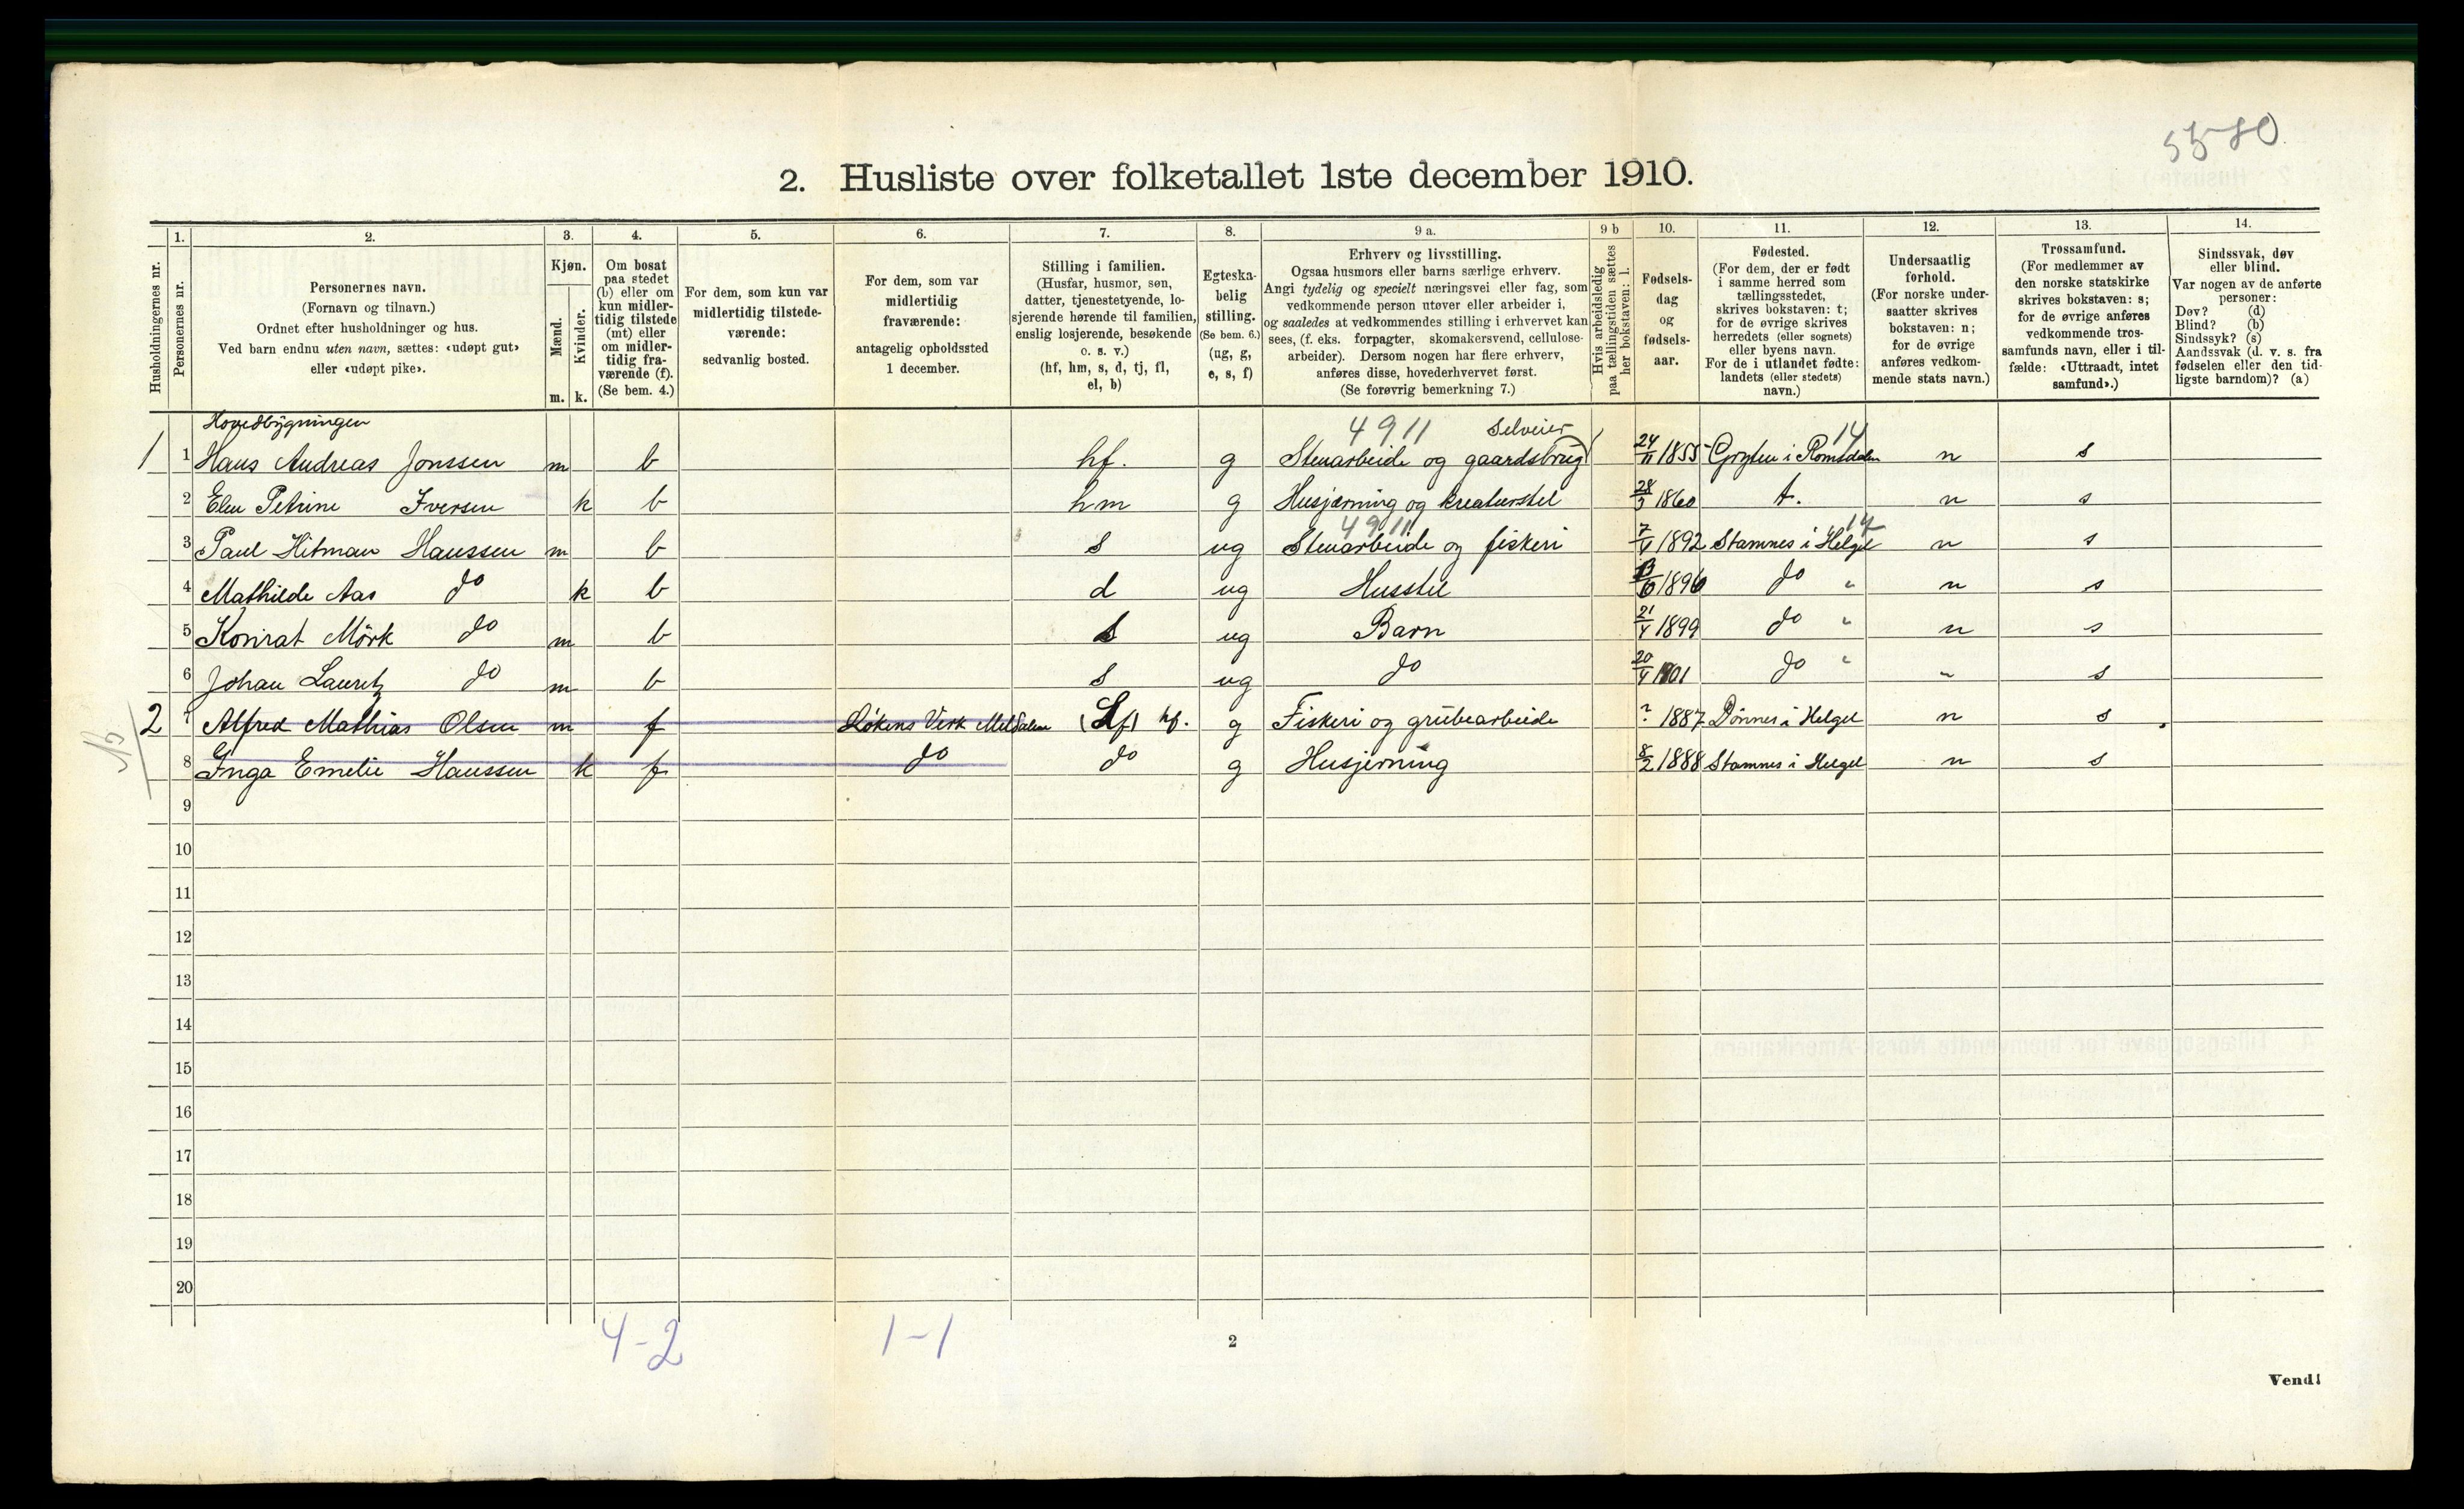 5580.
2. Husliste over folketallet 1ste december 1910.
Husholdningernes nr.
1.
Personernes nr.
2.
Personernes navn.
(Fornavn og tilnavn.)
Ordnet efter husholdninger og hus.
Ved barn endnu uten navn, sættes: «udøpt gut»
eller «udøpt pike».
3.
Kjøn.
Mænd.
Kvinder.
m. k.
4.
Om bosat
paa stedet
(b) eller om
kun midler-
tidig tilstede
(mt) eller
om midler-
tidig fra-
værende (f).
(Se bem. 4.)
5.
For dem, som kun var
midlertidig tilstede-
værende:
sedvanlig bosted.
6.
For dem, som var
midlertidig
fraværende:
antagelig opholdssted
1 december.
7.
Stilling i familien.
(Husfar, husmor, søn,
datter, tjenestetyende, lo-
sjerende hørende til familien,
enslig losjerende, besøkende
o. s. v.)
(hf, hm, s, d, tj, fl,
el, b)
8.
Egteska-
belig
stilling.
(Se bem. 6.)
(ug, g,
e, s, f)
9 a.
Erhverv og livsstilling.
Ogsaa husmors eller barns særlige erhverv.
Angi tydelig og specielt næringsvei eller fag, som
vedkommende person utøver eller arbeider i,
og saaledes at vedkommendes stilling i erhvervet kan
sees, (f. eks. forpagter, skomakersvend, cellulose-
arbeider). Dersom nogen har flere erhverv,
anføres disse, hovederhvervet først.
(Se forøvrig bemerkning 7.)
9 b
Hvis arbeidsledig
paa tællingstiden sættes
her bokstaven: l.
10.
Fødsels-
dag
og
fødsels-
aar.
11.
Fødested.
(For dem, der er født
i samme herred som
tællingsstedet,
skrives bokstaven: t;
for de øvrige skrives
herredets (eller sognets)
eller byens navn.
For de i utlandet fødte:
landets (eller stedets)
navn.)
12.
Undersaatlig
forhold.
(For norske under-
saatter skrives
bokstaven: n;
for de øvrige
anføres vedkom-
mende stats navn.)
13.
Trossamfund.
(For medlemmer av
den norske statskirke
skrives bokstaven: s;
for de øvrige anføres
vedkommende tros-
samfunds navn, eller i til-
fælde: «Uttraadt, intet
samfund».)
14.
Sindssvak, døv
eller blind.
Var nogen av de anførte
personer:
Døv? (d)
Blind? (b)
Sindssyk? (s)
Aandssvak (d. v. s. fra
fødselen eller den tid-
ligste barndom)? (a)
Hovedbygningen 4911 Selveier 14
1 1 Hans Andreas Jonssen m b hf. g Stenarbeide og gaardsbrug 24/11 1855 Gryten i Romsdalen n s
2 Elen Petrine Iversen k b hm g Husjerning og kreaturstel 28/3 1860 t. n s
4911 14
3 Paul Hitman Hanssen m b s ug Stenarbeide og fiskeri 7/4 1892 Stamnes i Helgel n s
4 Mathilde Aas do k b d ug Husstel 1896 do " n s
5 Konrat Mörk do m b s ug Barn 21/4 1899 do " n s
6 Johan Lauretz do m b s ug do 1901 do " " s
2 Alfred Mathias Olsen m f Løkens Verk Meldalen (Lf) hf. g Fiskeri og grubearbeide ? 1887 Dönnes i Helgel n s
8 Inga Emelie Hanssen k f do do g Husjerning 8/2 1888 Stamnes i Helgel n s
9
10
11
12
13
14
15
16
17
18
19
20
4-2 1-1
2
Vend!